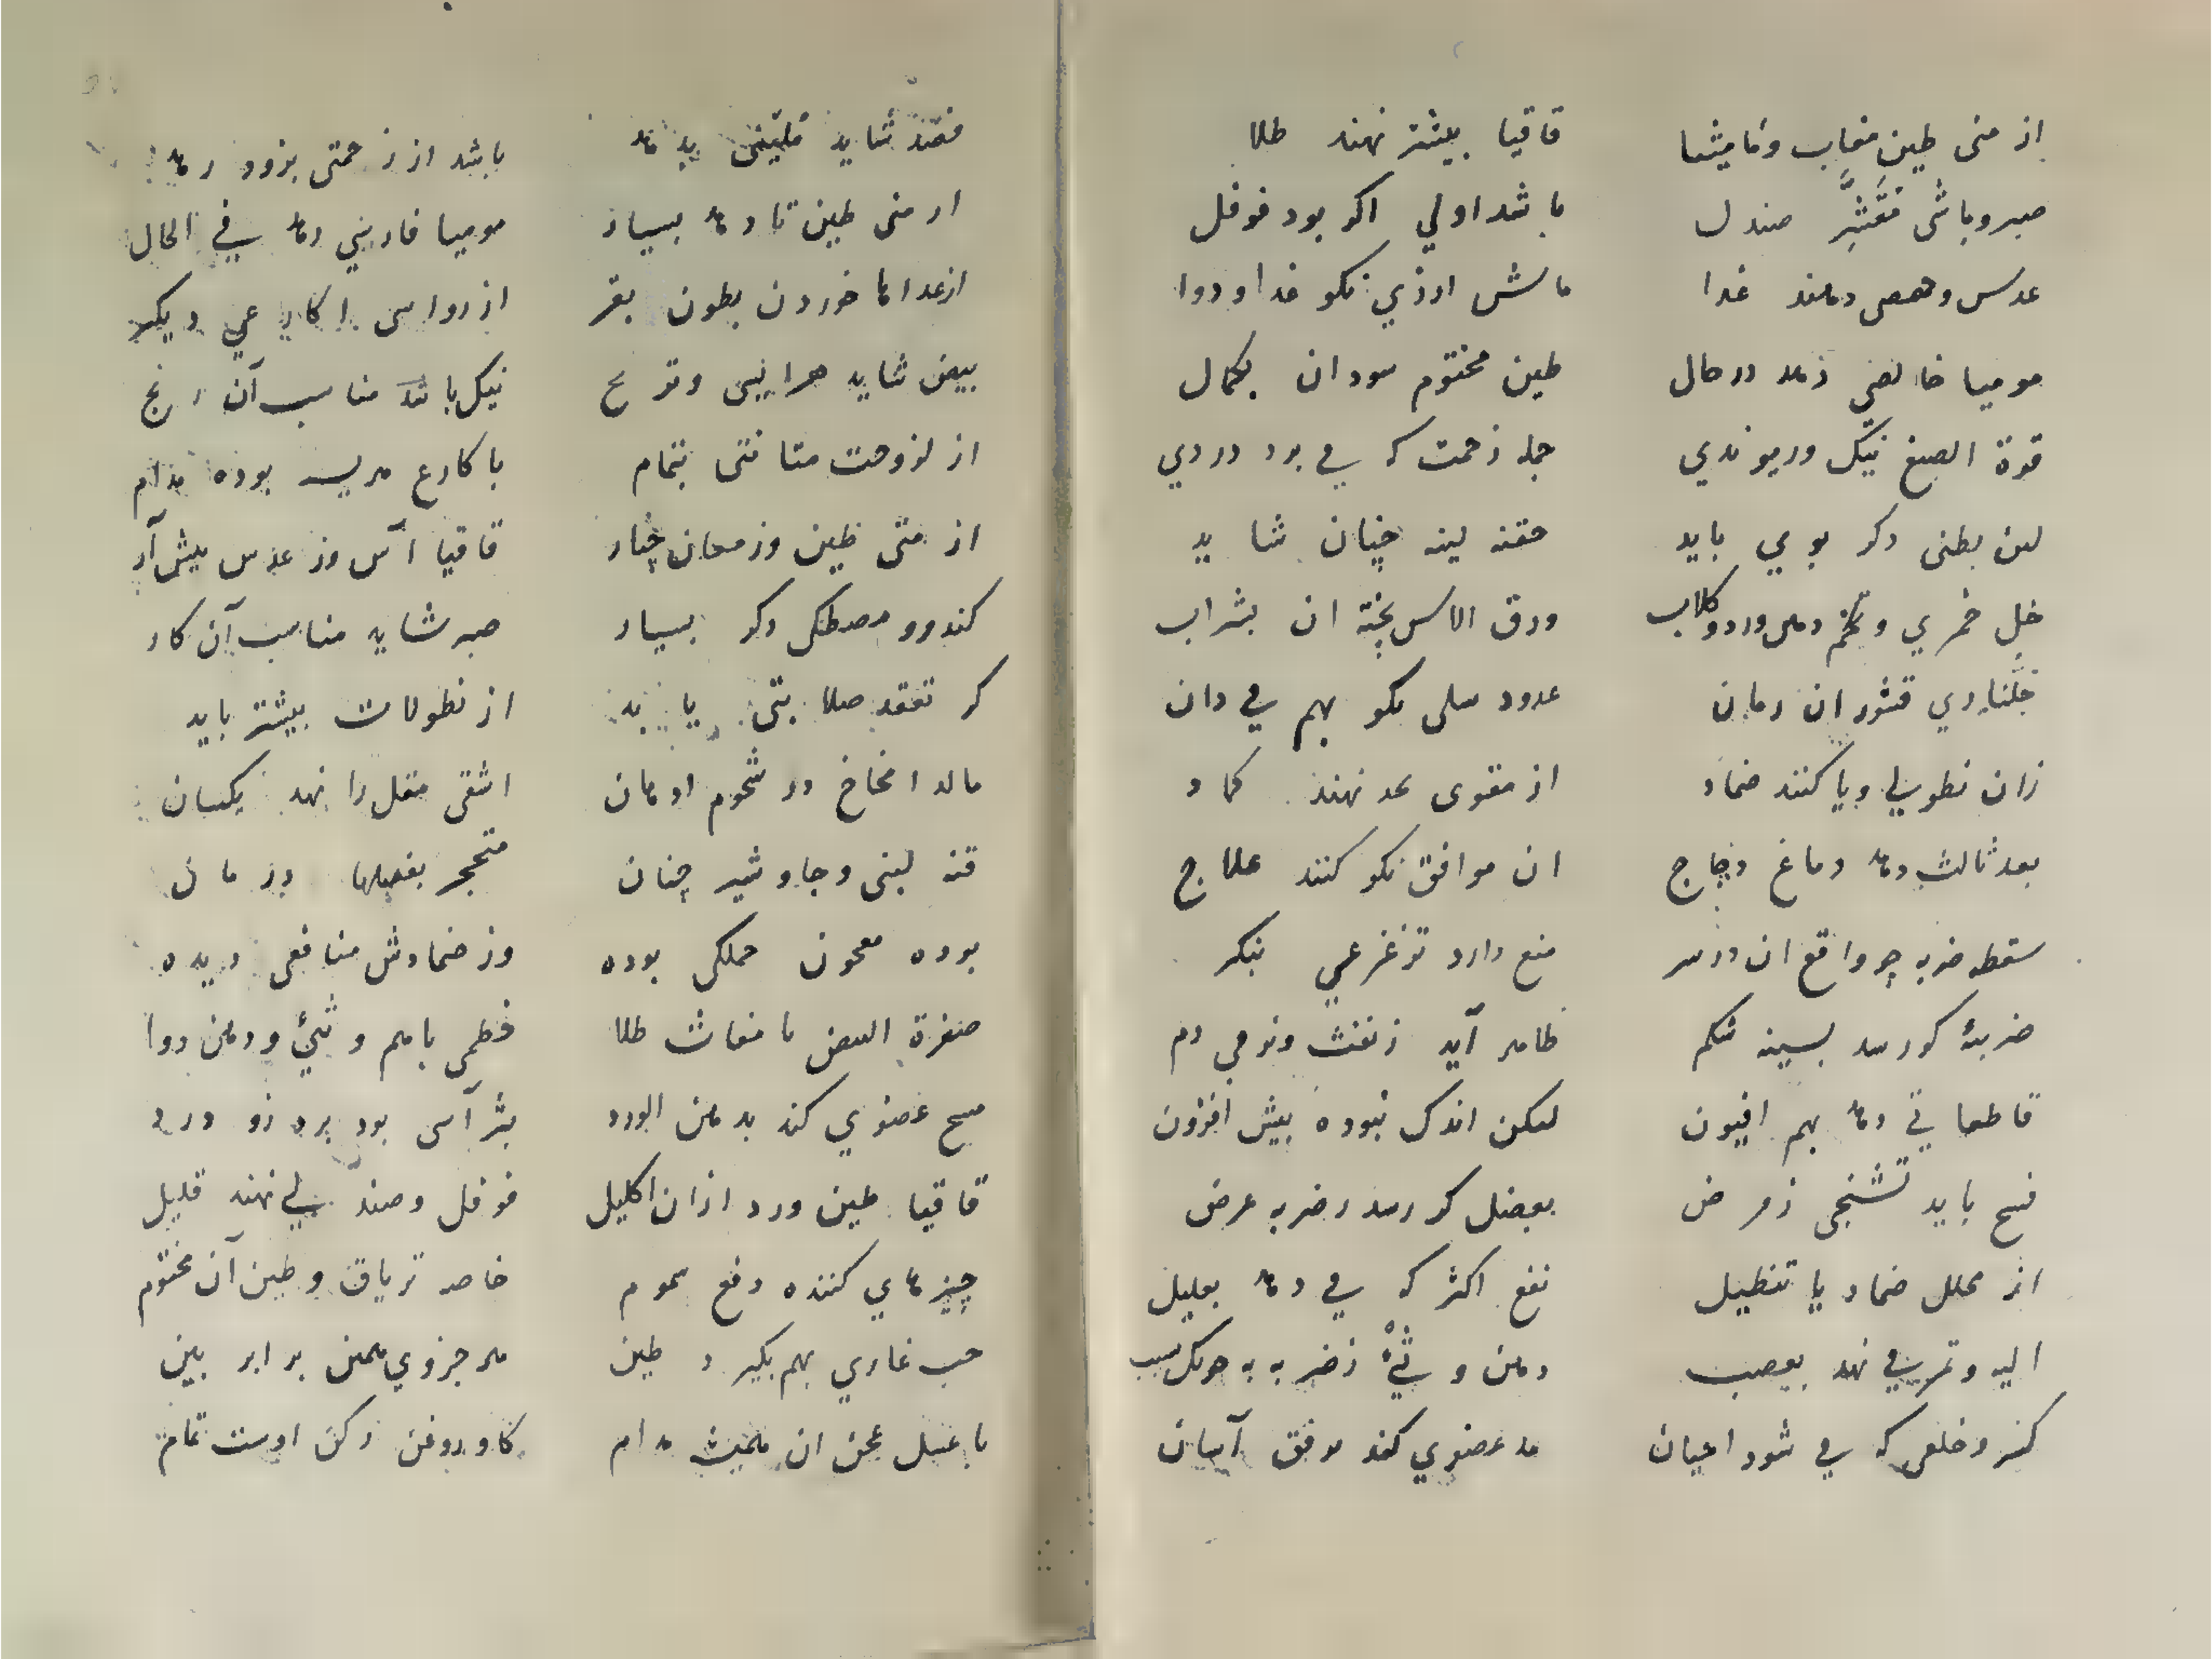 از منی طین مغاب وقامیشا قاقیا بیشتر نهند طلا
صبر و باشی مقشر صندل باشد اولي اکر بود فوفل
عدس وحمص دهند غدا ماش ارزي نکو غدا و دوا
مومیا خالصي زهد در حال طین مختوم سودان بکمال
قوة الصبغ نیک وریوندي جمله زحمت که مي برد دردي
لین بطنی دکر بوي باید حقنه لینه چنان شاید
خل خمري و تخم دهن ورد وکلاب ورق الاس پخته ان بشراب
جلناري قشور ان رمان عدود سلی نکو بهم مي دان
زان نطولي ویا کنند ضماد از مقوی نهند کماد
بعد ثالث دهد دماغ دجاج ان موافق نکو کنند علاج
سقطه ضربه چو واقع ان در سر منع دارد تزغزعي بنکر
ضربهٔ کورسد بسینه شکم ظاهر آید زنفث ونوعي دم
قاطعاتي دهد بهم افیون لیکن اندک نبوده بیش افزون
فسح باید تشنجی زمرض بعضل کر رسد زضربه عرض
از محلل ضماد یا تنطیل نفع اکثر که مي دهد بعلیل
الیه وتمریي نهد بعصب دهن و شيء زضربه به سبب
کسر وخلعی که مي شود اعیان هد عضوي کند موفق آسان
فصد شاید ملینی بدهد باشد از زحمتی بزود رهد
ارمنی طین تا دهد بسیار مومیا فارسي دهد في الحال
از غداها خوردن بطون بقر از رواسی اکارعي دیکر
بیض شاید هرایسی وترنج نیک باشد مناسب آن رنج
از لزوجت متانتی بتمام با کارع هریسه بوده مدام
از منی طین وز مغاث چنار قاقیا آس وز عدس بیش آر
کندر ومصطکی دکر بسیار صبر شاید مناسب آن کار
کر تعقد صلابتی یابد از نطولات بیشتر باید
مالد امخاخ در شحوم ادهان اشقی مقل را نهد یکسان
قنه لبنی وجاوشیر چنان متحجر بفعلها درمان
بوده معجون حملکی بوده وز ضمادش منافعی دیده
صفرة البیض با مغاث طلا خطمی باهم و شيء ودهن دوا
مسح عضوي کند بدهن الورد بثر آسی بود برد زو درد
قاقیا طین ورد ازان اکلیل فوفل وصندلي نهند قلیل
چیزهاي کننده دفع سموم خاصه تریاق وطین آن مختوم
حب غاري بهم بکیرد طین هر جزوي همین برابر بین
با عسل عجن ان مدام کاو روغن رکن اوست تمام